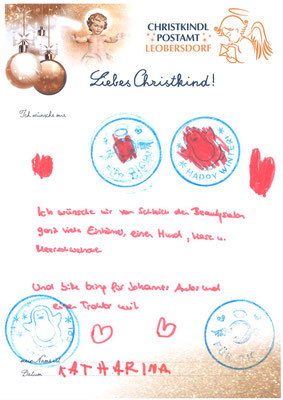 CHRISTKINDL
POSTAMT
LEOBERSDORF
Liebes Christkind!
Ich wünsche mir
HAPPY WINTER!
Ich wünsche mir von Schleich den Beautysalon
ganz viele Einhörner, einen Hund, Hase u.
Meerschweinchen
Und bitte bring für Johannes Autos und
einen Traktor mit
FÜR DICH
mein Name
KATHARINA
Datum